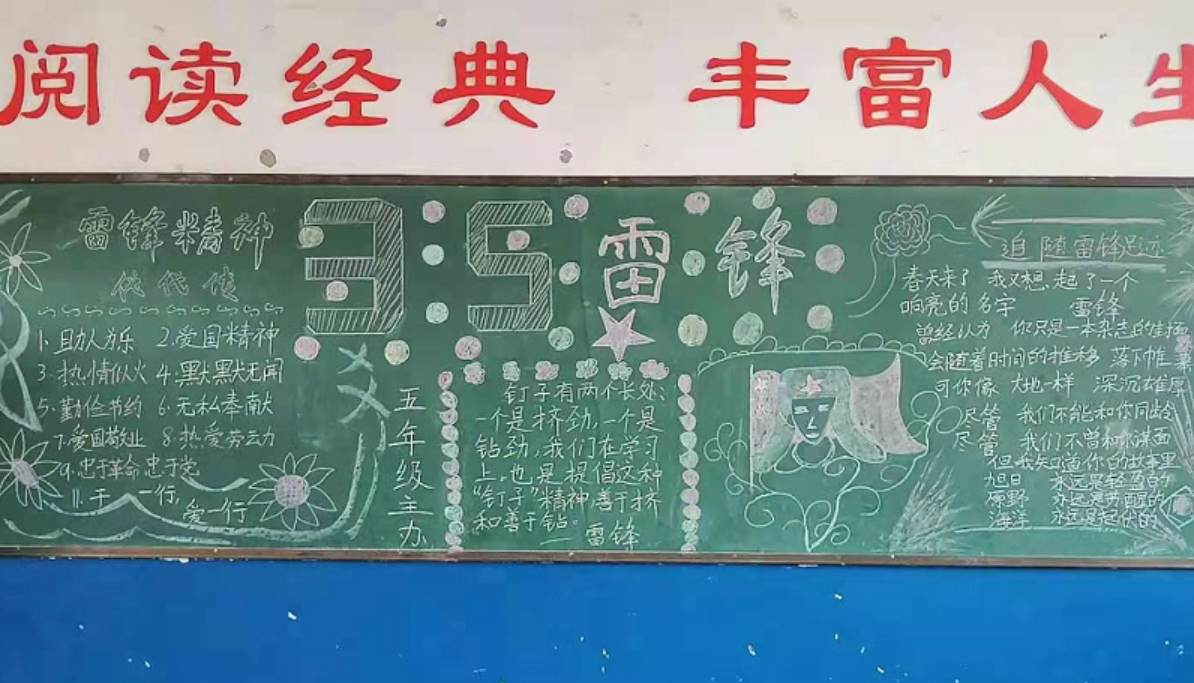 阅读经典 丰富人生
雷锋精神
代代传
3:5 雷锋
1. 助人为乐 2. 爱国精神
3. 热情似火 4. 默默无闻
5. 勤俭节约 6. 无私奉献
7. 爱国敬业 8. 热爱劳动
9. 忠于革命 忠于党
11. 干一行,
爱一行
五年级主办
钉子有两个长处:
一个是挤劲,一个是
钻劲,我们在学习
上,也是提倡这种
“钉子”精神善于挤
和善于钻。
— 雷锋
追随雷锋足迹
春天来了 我又想起了一个
响亮的名字 雷锋
曾经认为 你只是一本杂志的封
会随着时间的推移 落下帷幕
可你像 大地一样 深沉雄厚
尽管 我们不能和你同龄
尽管 我们不曾和你谋面
但我知道你的故事里
旭日 永远是
原野 永远是苏醒的
海洋 永远是起伏的